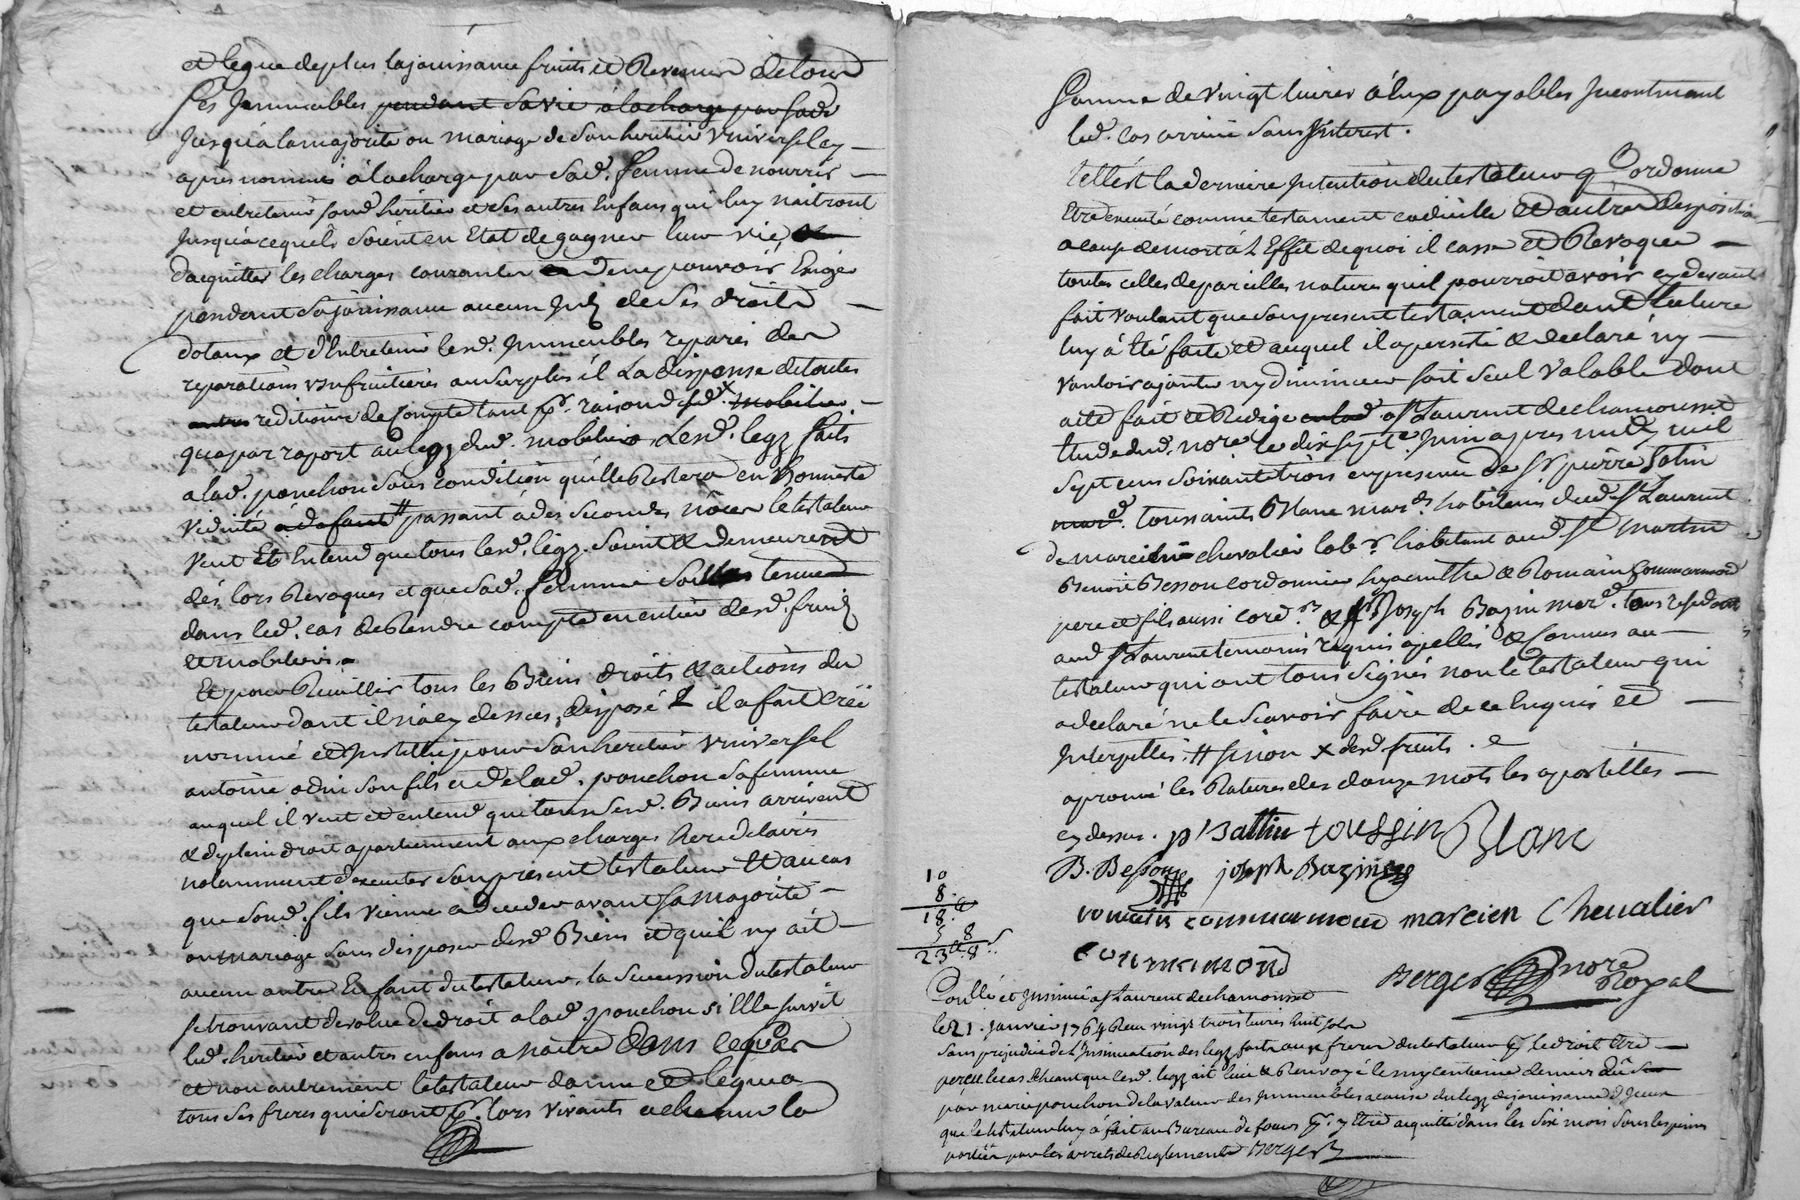 et legue de plus la jouissance fruits et Revenus de tous
ses Immeubles pendant sa vie a la charge par sade
Jusqu'a la majorité ou mariage de son heritier universel cy
apres nommé a la charge par sad. femme de nourrir
et entretenir sond. heritier et ses autres Enfans qui luy naitront
Jusqu'a ce quils soient en Etat de gagner leur vie,
dacquitter les charges courantes de ne pouvoir Exiger
pendant sa jouissance aucun de ses droits
dotaux et d'Entretenir lesd. Immeubles reparés des
reparations usufruitieres au surplus il la dispense de toutes
autres redition de Compte tant pr. raison desd. x mobilier
que par raport au legz dud. mobilier, Lesd. legz faits
a lad. ponchon sous condition qu'elle Restera en honneste
viduité a defaut # passant a des secondes nôces le testateur
veut Et Entend que tous lesd. legz. soient & demeurent
dés lors Revoqués et que sad. femme soit tenue
dans led. cas de Rendre compte en entier desd. fruits
et mobiliers.
Et pour Recueillir tous les Biens droits & actions du
testateur dont il n'a cy dessus disposé il a fait créé
nommé et Institué pour son heritier universel
antoine odin son fils et de lad. ponchon sa femme
auquel il veut et entend que tous sesd. Biens arrivent
& de plein droit apartiennent aux charges hereditaires
notamment d'executer son present testateur Et au cas
que sond. fils vienne a deceder avant sa majorité
ou mariage sans disposer desd. Biens et quil ny ait
aucun autre Enfant du testateur, la succession du testateur
se trouvant devolue de droit a lad. ponchon si Elle survit
led. heritier et autres enfans a naitre dans ce cas
et non autrement le testateur donne et legue a
tous ses freres qui seront pr. lors vivants a chacun la
somme de vingt livres à Eux payables Incontinent
led. cas arrivé sans Interest.
telle est la derniere Intention du testateur qu'il ordonne
Etre executé comme testament codicille Et autres dispositions
a cause de mort a L'Effet de quoi il casse et Revoque
toutes celles de pareilles natures quil pourroit avoir cy devant
fait voulant que son present testament dont lecture
luy a Eté faite et auquel il a persisté & declaré ny
vouloir ajouter ny diminuer soit seul valable dont
acte fait et Redigé a St Laurent de chamousset
Etude dud. nore. le dix sept Juin apres midy mil
sept cens soixante trois en presence de sr pierre Batin
mard. toussaints Blanc mard. habitants dud. St Laurent
de marcien chevalier labr. habitant aud. St martin
Benoit Besson cordonnier hyacinthe & Romain Commarmond
pere et fils aussi cordrs. & Sr Joseph Bazin mard. tous residents
aud. St Laurent temoins requis apellés & Connus au
testateur qui ont tous signés non le testateur qui
a declaré ne le scavoir faire de ce Enquis et
Interpellé. # sinon x desd. fruits. &
aprouvé les Ratures des douze mots les apostilles
cy dessus. p Battin toussin Blanc
B. Besson joseph Bazin
romain commarmond marcien Chevalier
commarmond
Berger nore Royal
10
8.
18.
5 8
23 8
Conllé et Insinué a St Laurent de chamousset
le 21. Janvier 1764 Recu vingt trois livres huit sols
sans prejudice de L'Insinuation des legz faits aux freres du testateur pr. le droit Etre
perçu le cas Echeant que lesd. legz ait lieu & Renvoyé le my centieme denier du
par marie ponchon de la valeur des Immeubles a cause du legz de jouissance d'Iceux
que le testateur luy a fait au Bureau de pr. y Etre acquitté dans les six mois sous les peines
portées par les arrets de Reglements Berger